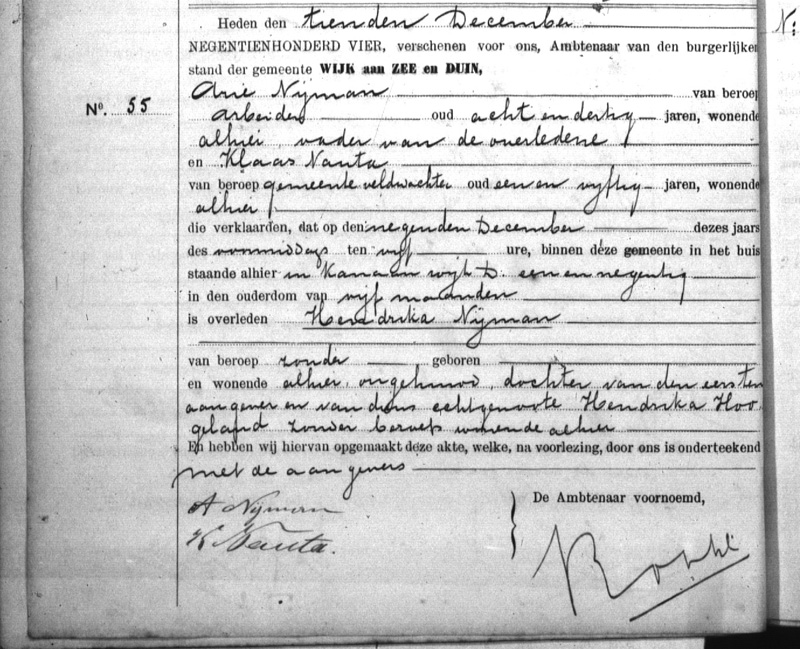 Heden den tienden December
NEGENTIENHONDERD VIER, verschenen voor ons, Ambtenaar van den burgerlijken
stand der gemeente WIJK aan ZEE en DUIN,
Nº. 55
Arie Nijman van beroep
arbeider oud acht en dertig jaren, wonende
alhier, vader van de overledene
en Klaas Nauta
van beroep gemeente veldwachter oud een en vyftig jaren, wonende
alhier
die verklaarden, dat op den negenden December dezes jaars
des voormiddags ten vyf ure, binnen deze gemeente in het huis
staande alhier in Kanaan wyk D. een en negentig
in den ouderdom van vyf maanden
is overleden Hendrika Nijman
van beroep zonder geboren
en wonende alhier, ongehuwd, dochter van den eersten
aangever en van diens echtgenoote Hendrika Hoo
geland zonder beroep wonende alhier
En hebben wij hiervan opgemaakt deze akte, welke, na voorlezing, door ons is onderteekend
met de aangevers
A Nijman
K Nauta.
De Ambtenaar voornoemd,